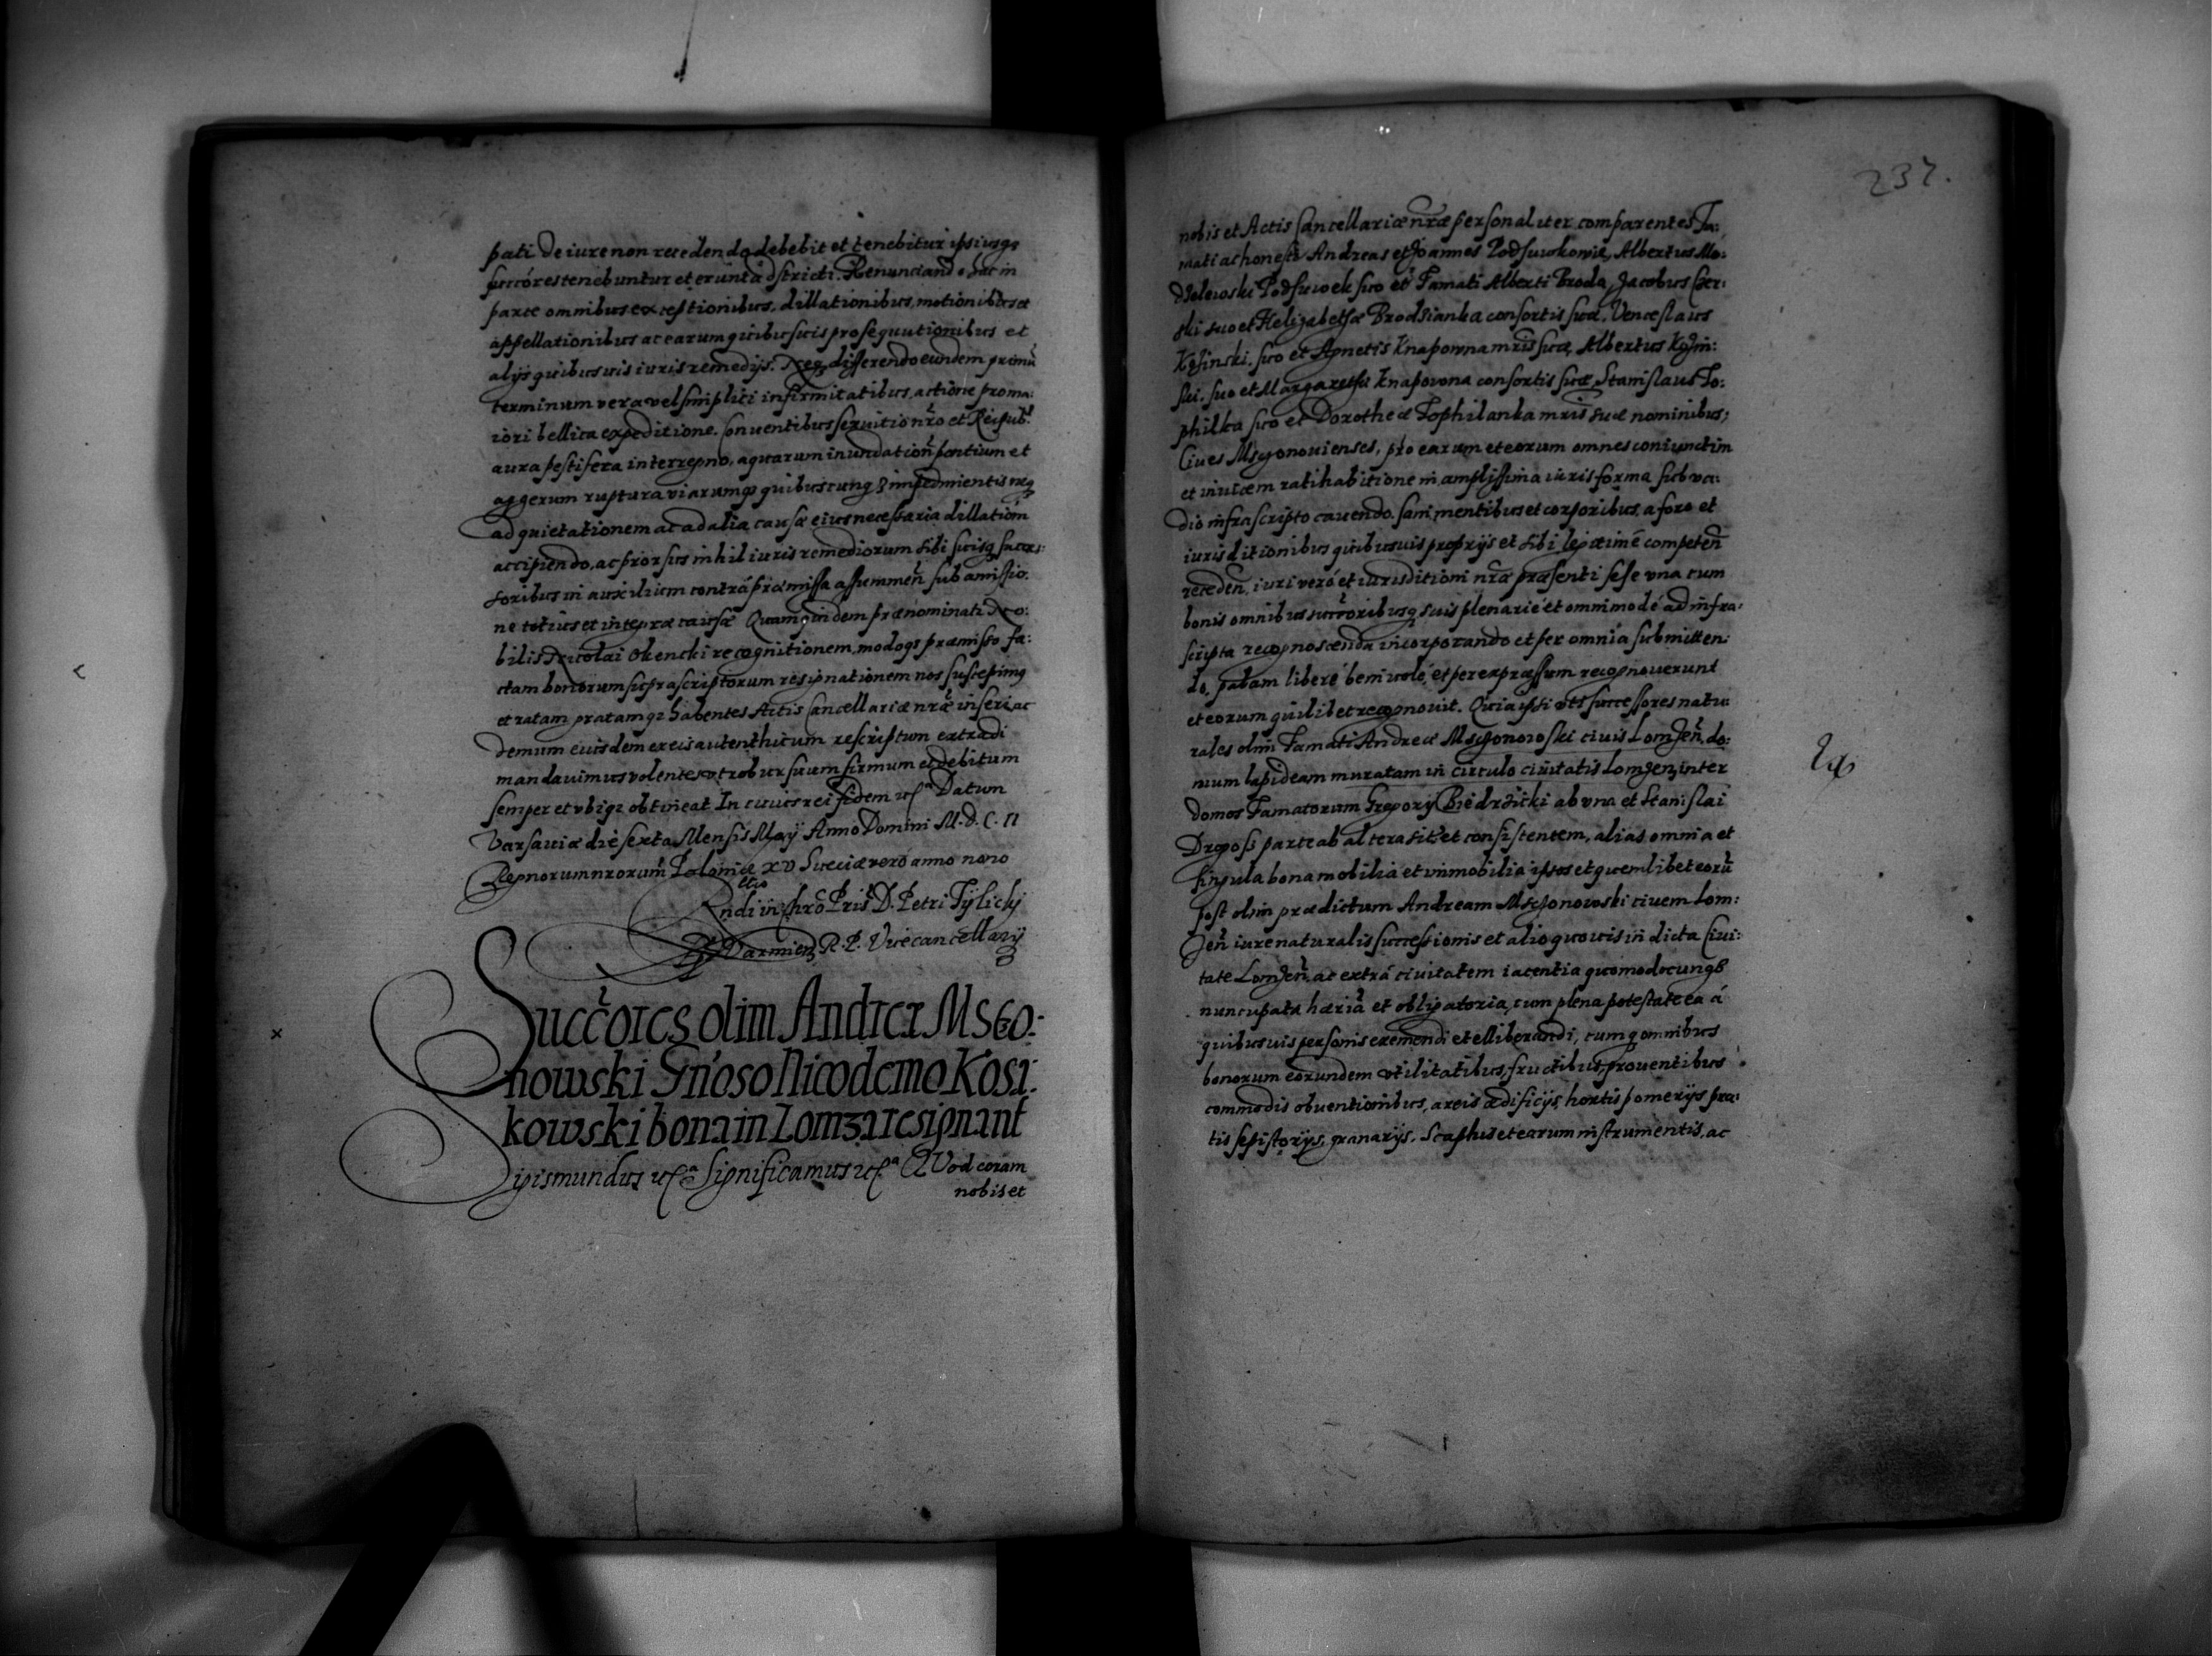 pati de iure non recedendo debebit et tenebitur ipsiusqз
succ̃ores tenebuntur et erunt adstricti. Renunciando hac in
parte omnibus exceptionibus, dillationibus, motionibus et
appellationibus ac earum quibusuis prosequutionibus et
alijs quibusuis iuris remedijs. Neqз differendo eundem primũ
terminum vera vel simplici infirmitatibus, actione proma:
iori bellica expeditione. Conuentibus seruitio nr̃o et Reipub.
aura pestifera interregno, aquarum inundation̄ pontium et
aggerum ruptura viarumqз quibuscunqз impedimentis neqз
ad quietationem ac ad alia causæ eius necessaria dillation̄
accipiendo, ac prorsus nihil iuris remediorum sibi suisqз succes:
soribus in auxilium contrá præmissa assummen̄ sub amissio:
ne totius et integræ causæ Quamquidem prænominati No:
bilis Nicolai Okencki recognitionem, modoqз præmisso fa:
ctam bonorum suprascriptorum resignationem nos suscepimus
et ratam gratamqз habentes Actis Cancellariæ nr̃æ inseri ac
demum eiusdem ex eis autenthicum rescriptum extradi
mandauimus volentes vt robur suum firmum et debitum
semper et vbiqз obtineat In cuius rei fidem etc̃ª Datum
Varsauiæ die sexta Mensis Maij Anno Domini M.D.C.II
Regnorum nrorum Poloniæ XV Sueciæ vero anno nono
Rndi in Chrõ Pris D. Petri Tÿlickÿ
Varmien R.P. Vicecancellarij
Succ̃ores olim Andreæ Msgo:
nowski Gñoso Nicodemo Kosi:
kowski bona in Lomza resignant
Sigismundus etc̃ª Significamus etc̃ª Quod coram
nobis et
237.
nobis et Actis Cancellariæ nr̃æ personaliter comparentes Fa:
mati ac honesti Andreas et Joannes Podsuwkowie, Albertus Mo:
dzelewski Podsuwek suo et Famati Alberti Broda, Jacobus Cser:
ski suo et Helizabethæ Brodzianka consortis suæ, Venceslaus
suo et Agnetis Knapowna mr̃is suæ, Albertus
ski. suo et Margarethæ Knapowna consortis suæ, Stanislaus To:
philka suo et Dorotheæ Tophilanka mr̃is suæ nominibus,
Ciues Msgonouienses, pro earum et eorum omnes coniunctim
et inuicem ratihabitione in amplissima iuris forma sub va:
dio infrascripto cauendo. sani mentibus et corporibus, a foro et
iurisditionibus quibusuis proprijs et sibi legitime competen̄
receden̄, iuri vero et iurisditioni nr̃æ præsenti sese vna cum
bonis omnibus succ̃oribusqз suis plenarié et omnimodé ad infra:
scripta recognoscenda incorporando et per omnia submitten:
do, palam liberé beniuolé, et per expræssum recognouerunt
et eorum quilibet recognouit. Quia ipsi vt successores natu
rales olim Famati Andreæ Msgonowski ciuis Lomzen̄. do:
mum lapideam muratam in circulo ciuitatis Lomzen̄ inter
domos Famatorum Gregory Biedrzicki ab vna et Stanislai
Drgoss parte ab altera sit̄ et consistentem, alias omnia et
singula bona mobilia et immobilia ipsos et quemlibet eorũ
post olim prædictum Andream Msgonowski ciuem Lom:
zen̄ iure naturalis successionis et alio quouis in dicta Ciui:
tate Lomzen̄. ac extrá ciuitatem iacentia quomodocunqз
nuncupata hæria et obligatoria, cum plena potestate ea á
quibusuis personis exemendi et elliberandi, cumqз omnibus
bonorum eorundem vtilitatibus, fructibus, prouentibus
commodis obuentionibus, areis ædificijs, hortis pomerijs pra:
tis sepistorijs, granarijs. Scaphis et earum instrumentis, ac